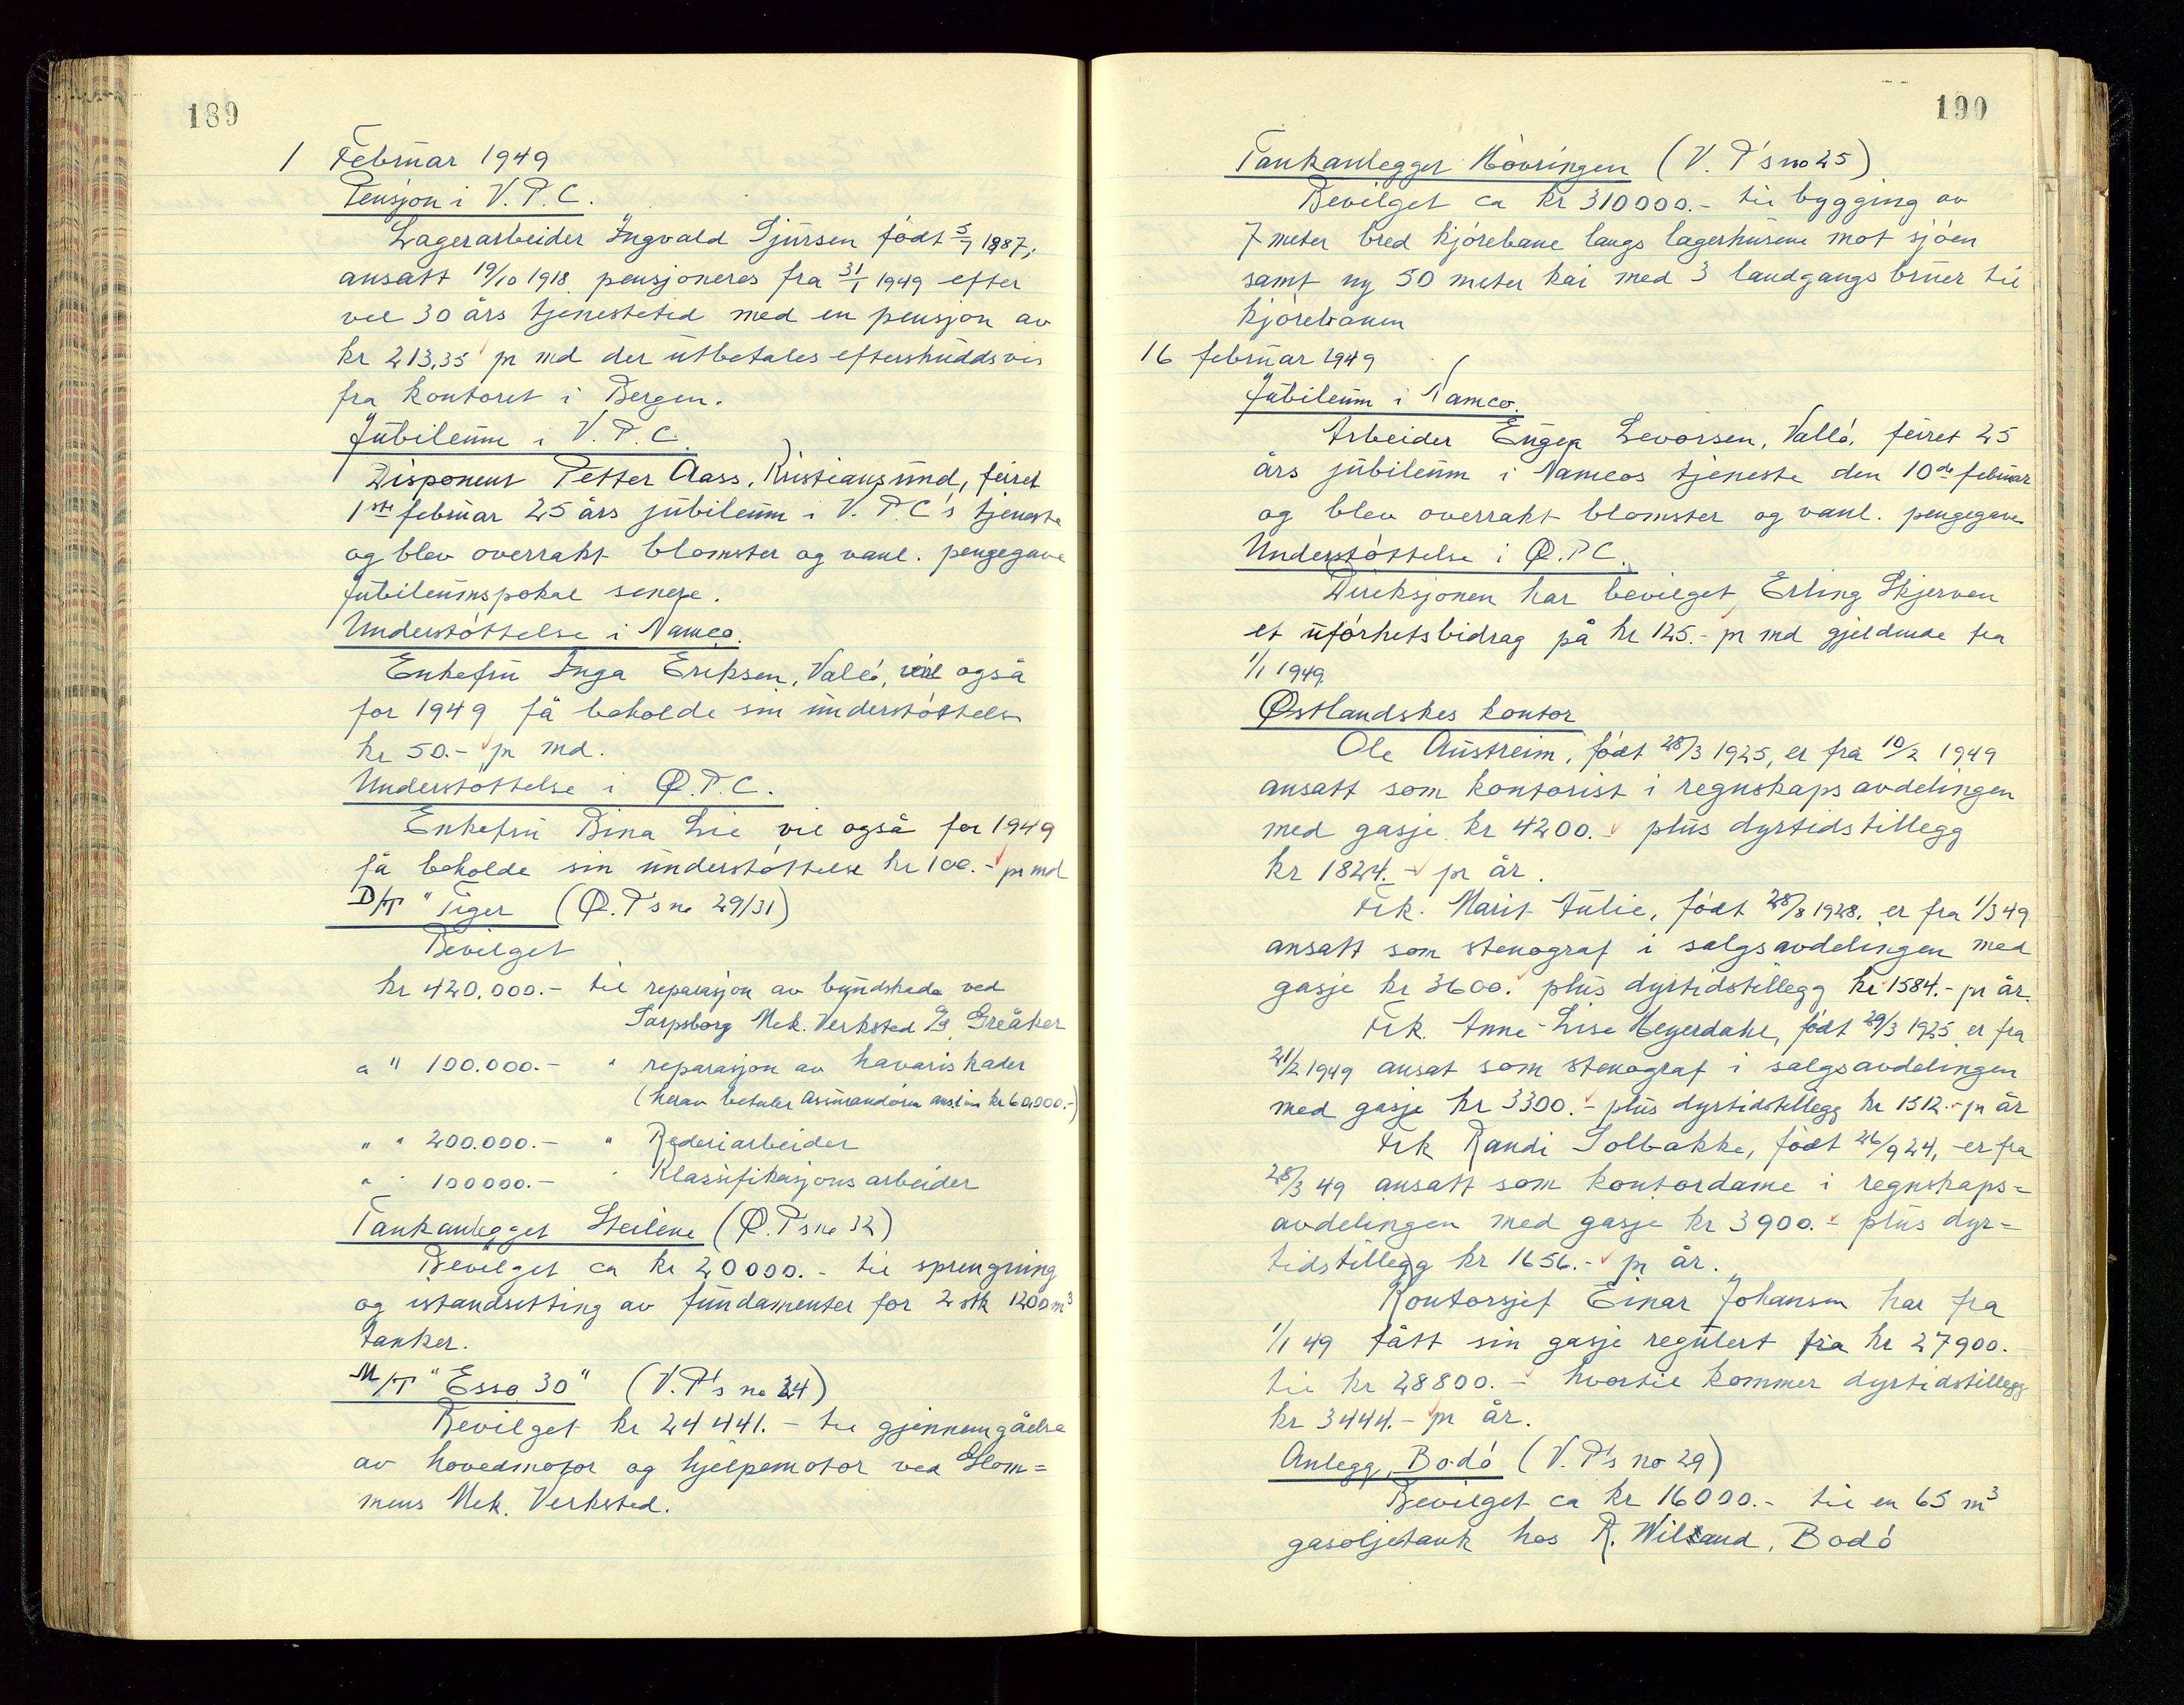 189
1 Februar 1949
Pensjon i V.P.C.
Lagerarbeider Ingvald Sjursen født 5/7 1887,
ansatt 19/10 1918 pensjoneres fra 31/1 1949 efter
vel 30 års tjenestetid med en pensjon av
kr 213,35 pr md der utbetales efterskuddsvis
fra kontoret i Bergen.
Jubileum i V.P.C.
Disponent Petter Aass, Kristiansund, feiret
1ste februar 25 års jubileum i V.P.C's tjeneste
og blev overrakt blomster og vanl. pengegave
Jubileumspokal senere.
Understøttelse i Namco.
Enkefru Inga Eriksen, Vallø, vil også
for 1949 få beholde sin understøttelse
kr 50.- pr md.
Understøttelse i Ø.P.C.
Enkefru Bina Lie vil også for 1949
få beholde sin understøttelse kr 100.- pr md
D/T "Tiger (Ø.P's no 29/31)
Bevilget
kr 420.000.- til reparasjon av bundskade ved
Sarpsborg Mek. Verksted Greåker
a " 100.000.- " reparasjon av havariskader
(herav betaler Assurandøren ansl. kr 60.000.-)
" " 200.000.- " Rederiarbeider
" " 100000.- " Klassifikasjonsarbeider
Tankanlegget Steilene (Ø.P's no 32)
Bevilget ca kr 20000.- til sprengning
og istandsetting av fundamenter for 2 stk 1200m³
tanker.
M/T "Esso 30" (V.P's no 24)
Bevilget kr 24441.- til gjennemgåelse
av hovedmotor og hjelpemotor ved Glom=
mens Mek. Verksted.
190
Tankanlegget Høvringen (V.P's no 25)
Bevilget ca kr 310000.- til bygging av
7 meter bred kjørebane langs lagerhusene mot sjøen
samt ny 50 meter kai med 3 landgangsbruer til
kjørebanen
16 februar 1949
Jubileum i Namco.
Arbeider Eugen Levorsen, Vallø, feiret 25
års jubileum i Namcos tjeneste den 10de februar
og blev overrakt blomster og vanl. pengegave
Understøttelse i Ø.P.C.
Direksjonen har bevilget Erling Skjerven
et uførhetsbidrag på kr 125.- pr md gjeldende fra
1/1 1949
Østlandskes kontor
Ole Austreim, født 28/3 1925, er fra 10/2 1949
ansatt som kontorist i regnskapsavdelingen
med gasje kr 4200.- plus dyrtidstillegg
kr 1824.- pr år.
Frk. Marit Julie, født 28/8 1928, er fra 1/3 49
ansatt som stenograf i salgsavdelingen med
gasje kr 3600. plus dyrtidstillegg kr 1584.- pr år.
Frk. Anne-Lise Heyerdahl, født 29/3 1925 er fra
21/2 1949 ansat som stenograf i salgsavdelingen
med gasje kr 3300.- plus dyrtidstillegg kr 1512.- pr år
Frk Randi Solbakke, født 26/9 24, er fra
28/3 49 ansatt som kontordame i regnskaps=
avdelingen med gasje kr 3900.- plus dyr=
tidstillegg kr 1656.- pr år.
Kontorsjef Einar Johansen har fra
1/1 49 fått sin gasje regulert fra kr 27900.
til kr 28800.- hvortil kommer dyrtidstillegg
kr 3444.- pr år.
Anlegg, Bodø (V.P's no 29)
Bevilget ca kr 16000.- til en 65 m³
gasoljetank hos R. Wilsand, Bodø